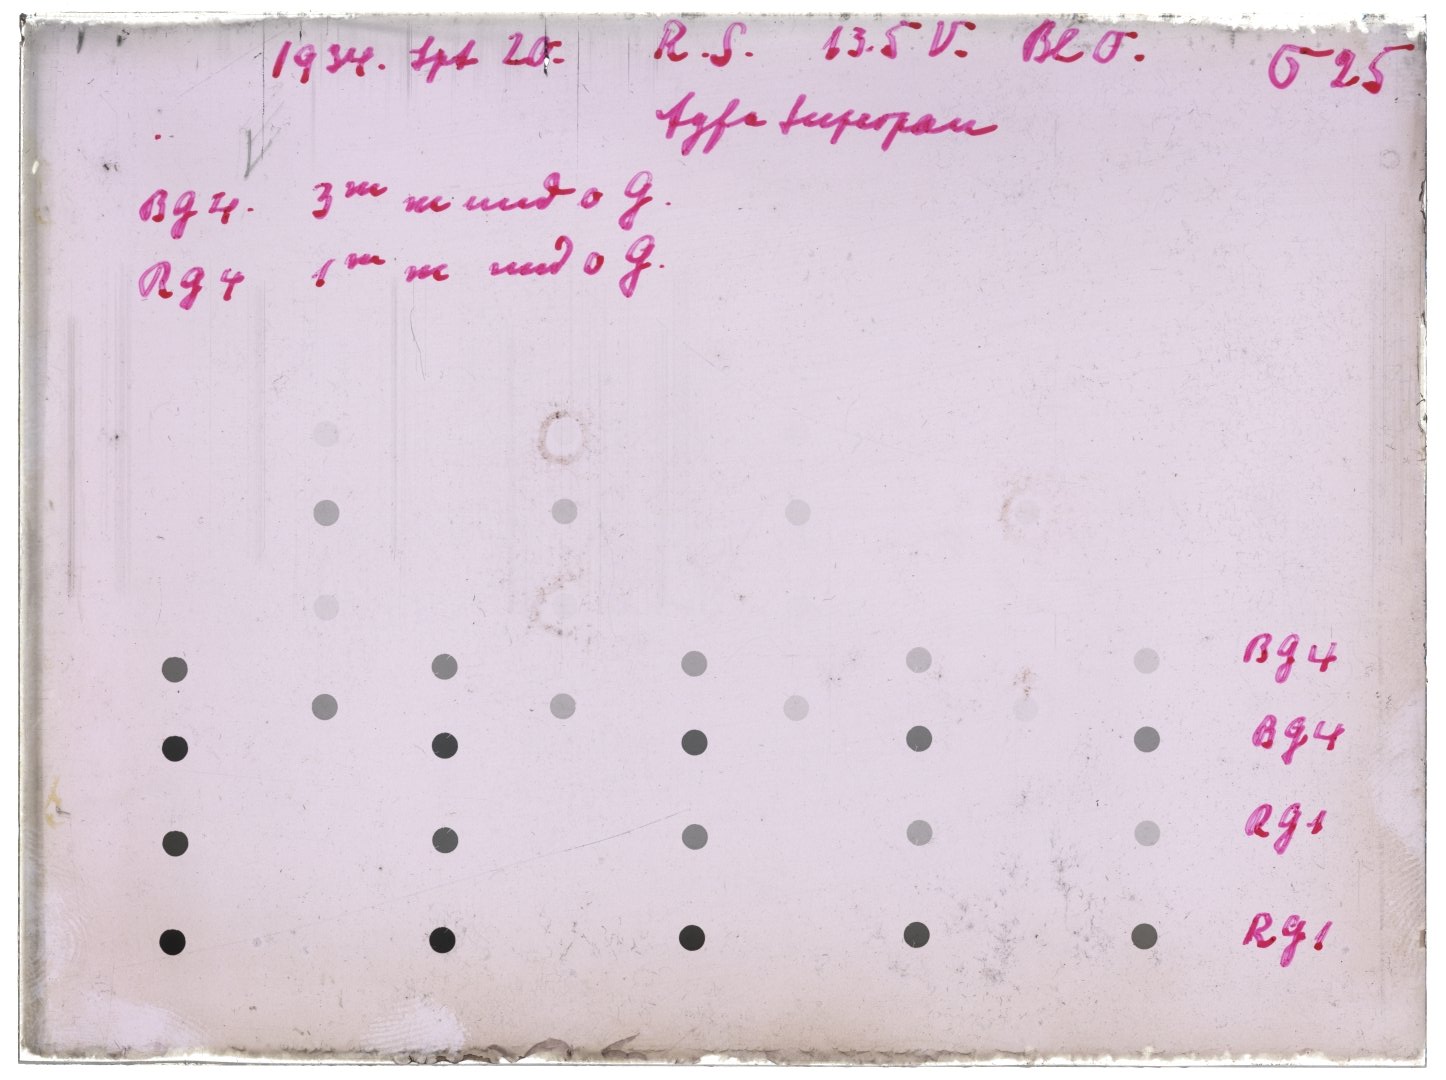 1934. Spt 20. R.S. 13.5 V. Bl 0. 0 25
Agfa Superpan
BG 4. 3 m m und o G.
RG 4 1 m m und o G.
BG 4
BG 4
RG 1
RG 1